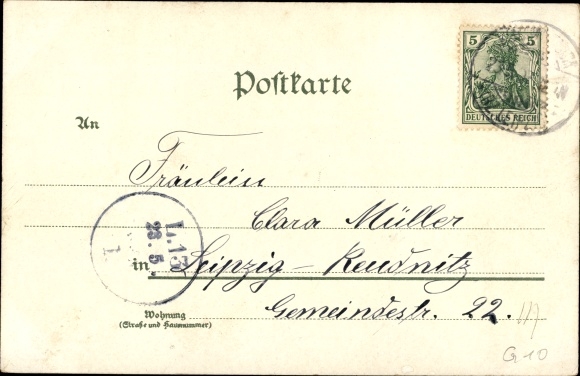 5 5
DEUTSCHES REICH
Postkarte
An
Fräulein
Clara Müller
in Leipzig-Reudnitz
Gemeindestr. 22. III
Wohnung
(Straße und Hausnummer)
L.13
23.5
1
G10